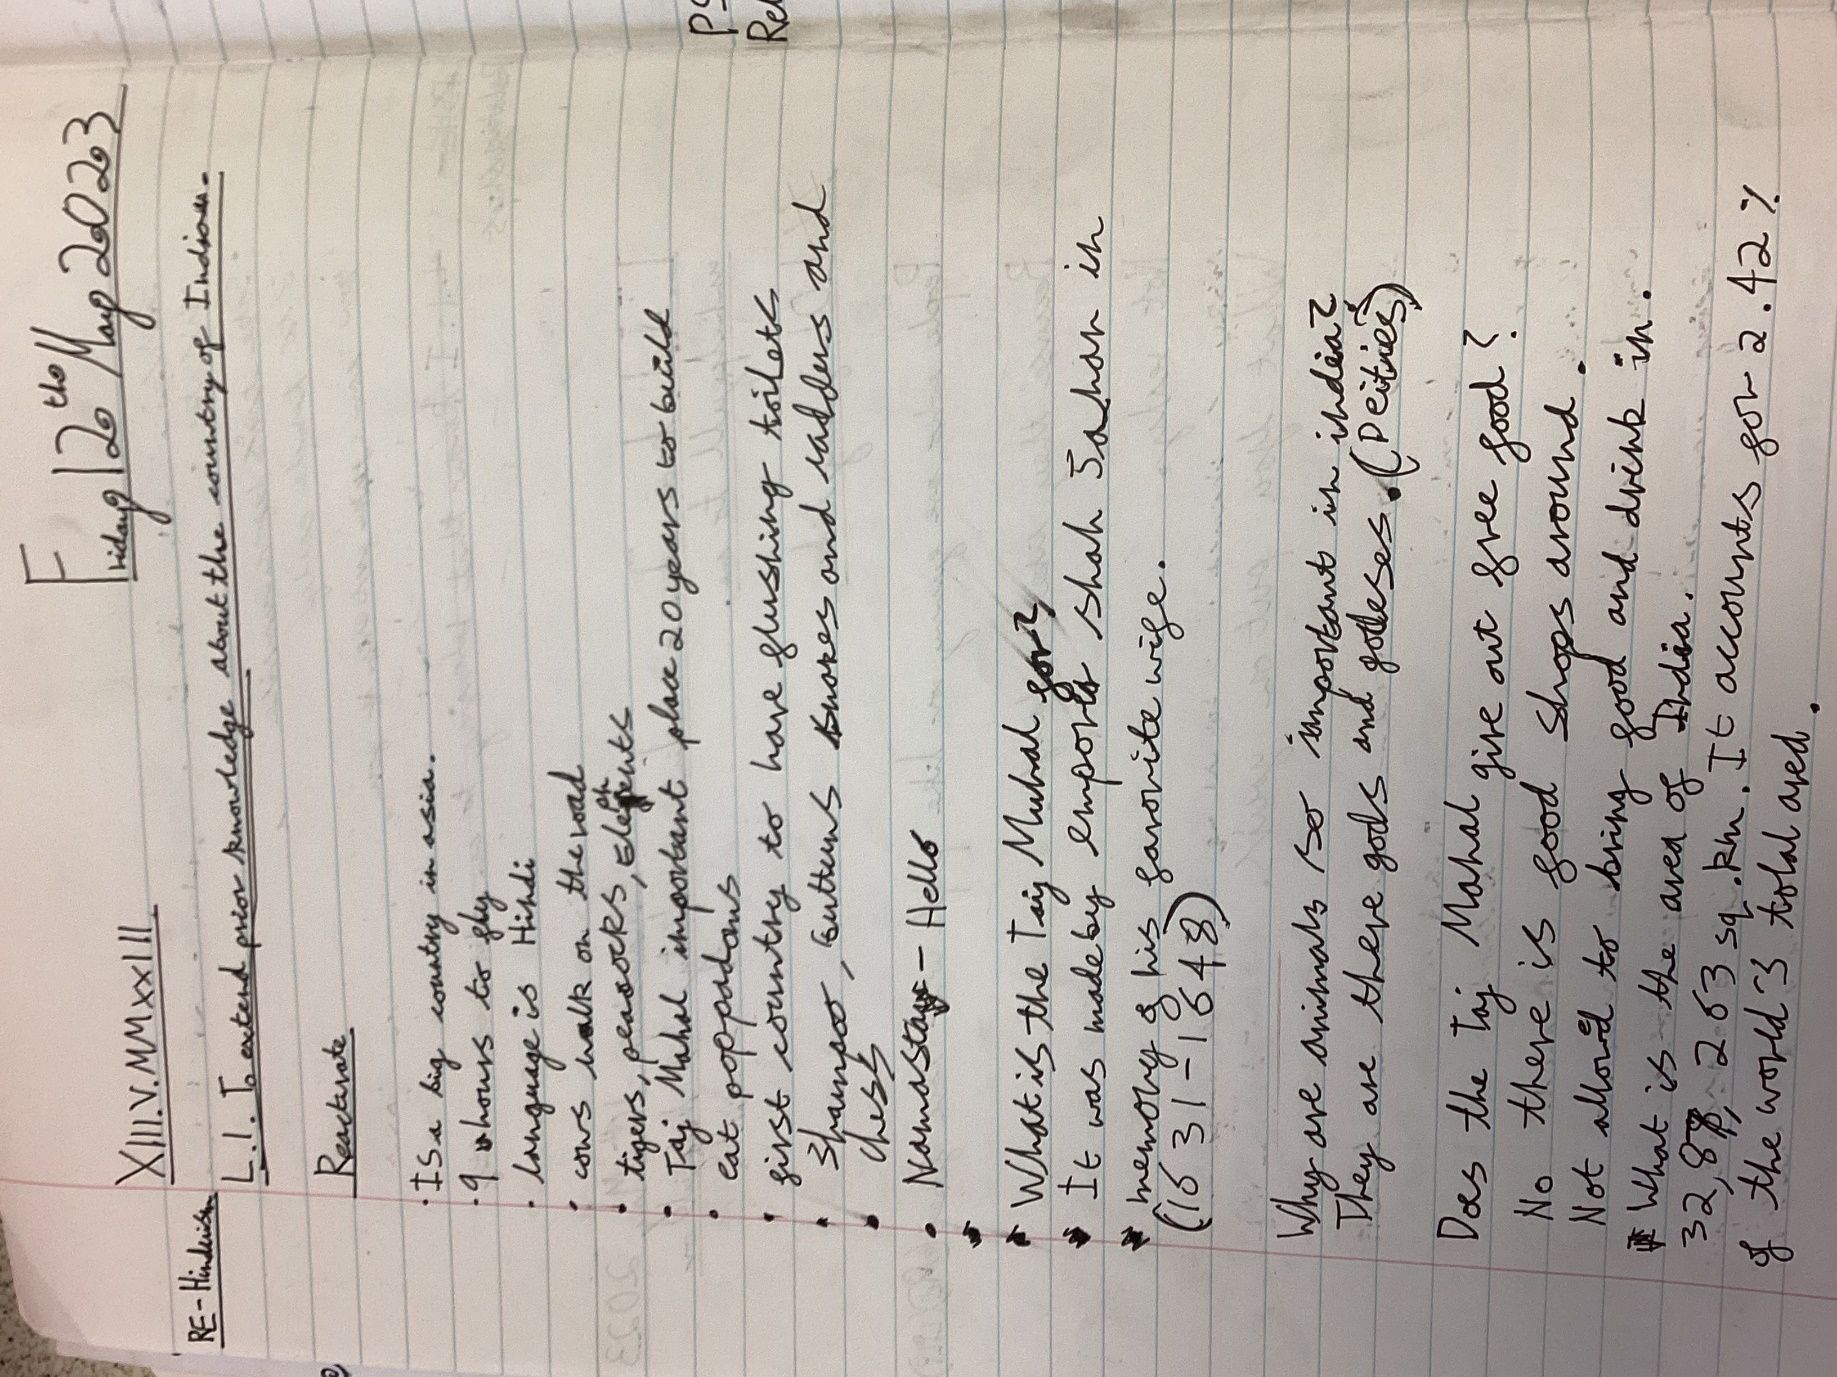 Friday 12th May 2023
XIII.V.MMXXIII
RE-Hinduism
L.I. To extend prior knowledge about the country of Indian.
Reactivate
• Is a big country in asia.
• 9 hours to fly
• language is Hindi
• cows walk on the road
• tigers, peacocks, Elephents
• Taj Mahal important place 20 years to build
• eat poppadoms
• first country to have flushing toilets
• Shampoo, buttons snakes and ladders and
• chess
• Namastay - Hello
• What is the Taj Mahal for?
• It was made by emporor shah Jahan in
• memory of his favorite wife.
(1631-1648)
Why are animals so important in india?
They are there gods and goddeses. (Deities)
Does the Taj Mahal give out free food?
No there is food shops around.
Not allowed to bring food and drink in.
What is the area of India.
32,87, 263 sq.km. It accounts for 2.42%
of the world's total area.